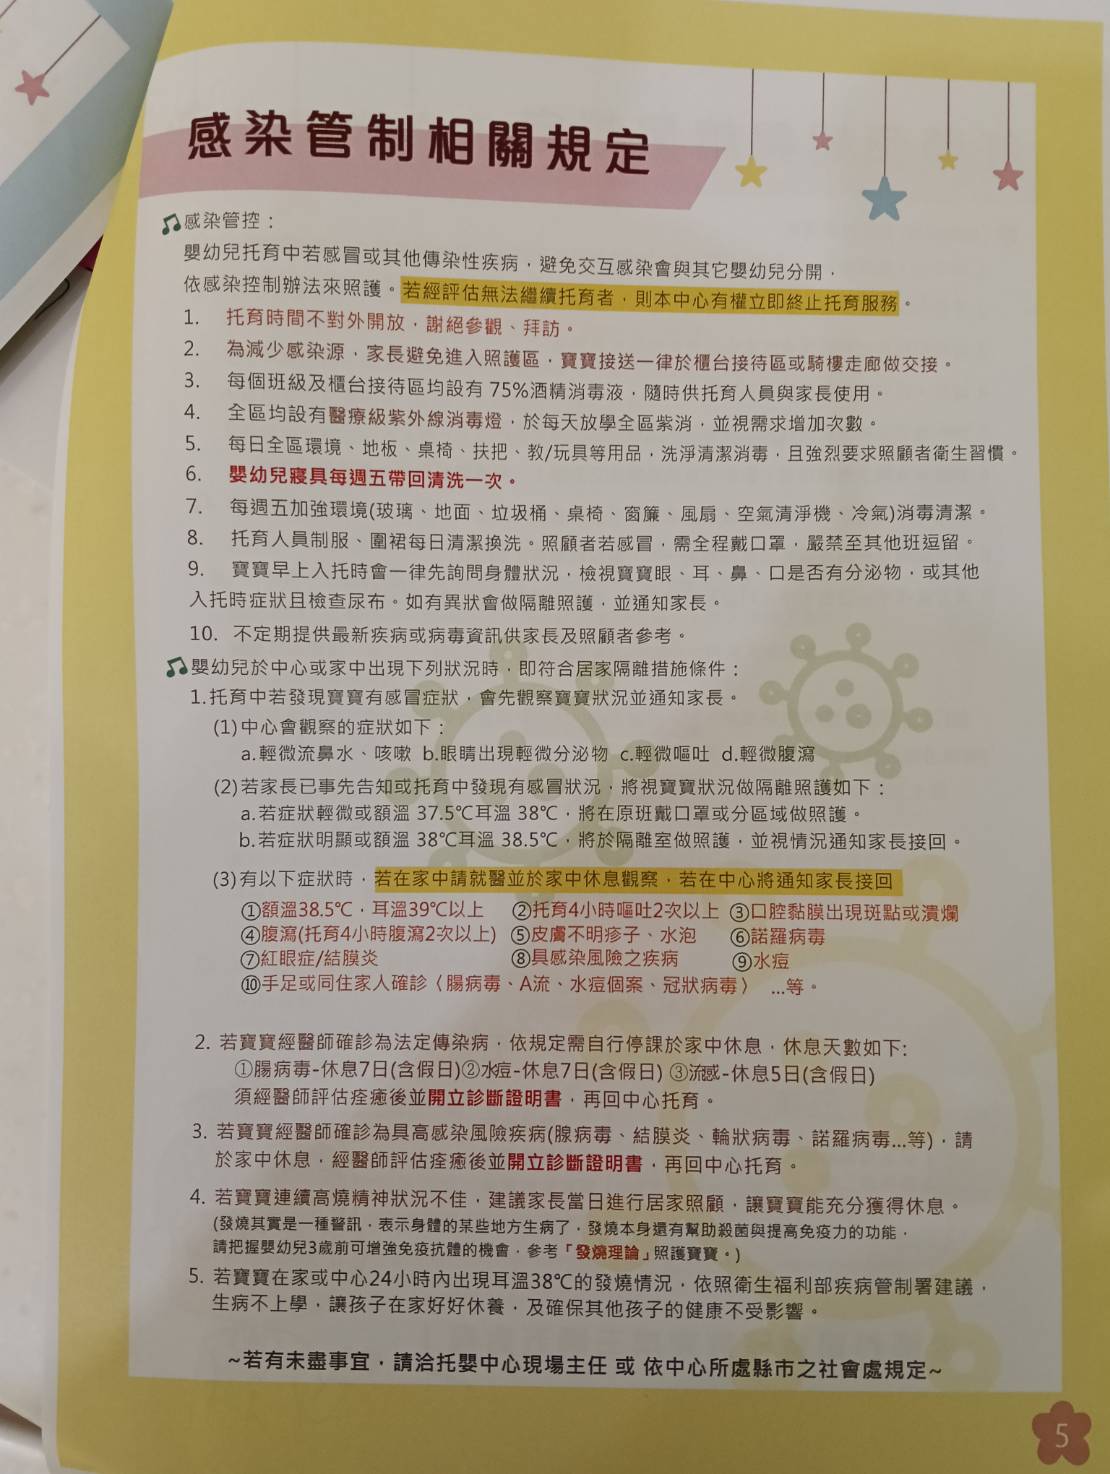 感染管制相關規定
感染管控：
嬰幼兒托育中若感冒或其他傳染性疾病，避免交互感染會與其它嬰幼兒分開，
依感染控制辦法來照護。若經評估無法繼續托育者，則本中心有權立即終止托育服務。
1. 托育時間不對外開放，謝絕參觀、拜訪。
2. 為減少感染源，家長避免進入照護區，寶寶接送一律於櫃台接待區或騎樓走廊做交接。
3. 每個班級及櫃台接待區均設有 75%酒精消毒液，隨時供托育人員與家長使用。
4. 全區均設有醫療級紫外線消毒燈，於每天放學全區紫消，並視需求增加次數。
5. 每日全區環境、地板、桌椅、扶把、教/玩具等用品，洗淨清潔消毒，且強烈要求照顧者衛生習慣。
6. 嬰幼兒寢具每週五帶回清洗一次。
7. 每週五加強環境(玻璃、地面、垃圾桶、桌椅、窗簾、風扇、空氣清淨機、冷氣)消毒清潔。
8. 托育人員制服、圍裙每日清潔換洗。照顧者若感冒，需全程戴口罩，嚴禁至其他班逗留。
9. 寶寶早上入托時會一律先詢問身體狀況，檢視寶寶眼、耳、鼻、口是否有分泌物，或其他
入托時症狀且檢查尿布。如有異狀會做隔離照護，並通知家長。
10. 不定期提供最新疾病或病毒資訊供家長及照顧者參考。
嬰幼兒於中心或家中出現下列狀況時，即符合居家隔離措施條件：
1.托育中若發現寶寶有感冒症狀，會先觀察寶寶狀況並通知家長。
(1)中心會觀察的症狀如下：
a.輕微流鼻水、咳嗽 b.眼睛出現輕微分泌物 c.輕微嘔吐 d.輕微腹瀉
(2)若家長已事先告知或托育中發現有感冒狀況，將視寶寶狀況做隔離照護如下：
a.若症狀輕微或額溫 37.5℃耳溫 38℃，將在原班戴口罩或分區域做照護。
b.若症狀明顯或額溫 38℃耳溫 38.5℃，將於隔離室做照護，並視情況通知家長接回。
(3)有以下症狀時，若在家中請就醫並於家中休息觀察，若在中心將通知家長接回
①額溫38.5℃，耳溫39℃以上 ②托育4小時嘔吐2次以上 ③口腔黏膜出現斑點或潰爛
④腹瀉(托育4小時腹瀉2次以上) ⑤皮膚不明疹子、水泡 ⑥諾羅病毒
⑦紅眼症/結膜炎 ⑧具感染風險之疾病 ⑨水痘
⑩手足或同住家人確診〈腸病毒、A流、水痘個案、冠狀病毒〉 ...等。
2. 若寶寶經醫師確診為法定傳染病，依規定需自行停課於家中休息，休息天數如下:
①腸病毒-休息7日(含假日)②水痘-休息7日(含假日) ③流感-休息5日(含假日)
須經醫師評估痊癒後並開立診斷證明書，再回中心托育。
3. 若寶寶經醫師確診為具高感染風險疾病(腺病毒、結膜炎、輪狀病毒、諾羅病毒...等)，請
於家中休息，經醫師評估痊癒後並開立診斷證明書，再回中心托育。
4. 若寶寶連續高燒精神狀況不佳，建議家長當日進行居家照顧，讓寶寶能充分獲得休息。
(發燒其實是一種警訊，表示身體的某些地方生病了，發燒本身還有幫助殺菌與提高免疫力的功能，
請把握嬰幼兒3歲前可增強免疫抗體的機會，參考「發燒理論」照護寶寶。)
5. 若寶寶在家或中心24小時內出現耳溫38℃的發燒情況，依照衛生福利部疾病管制署建議，
生病不上學，讓孩子在家好好休養，及確保其他孩子的健康不受影響。
~若有未盡事宜，請洽托嬰中心現場主任 或 依中心所處縣市之社會處規定~
5